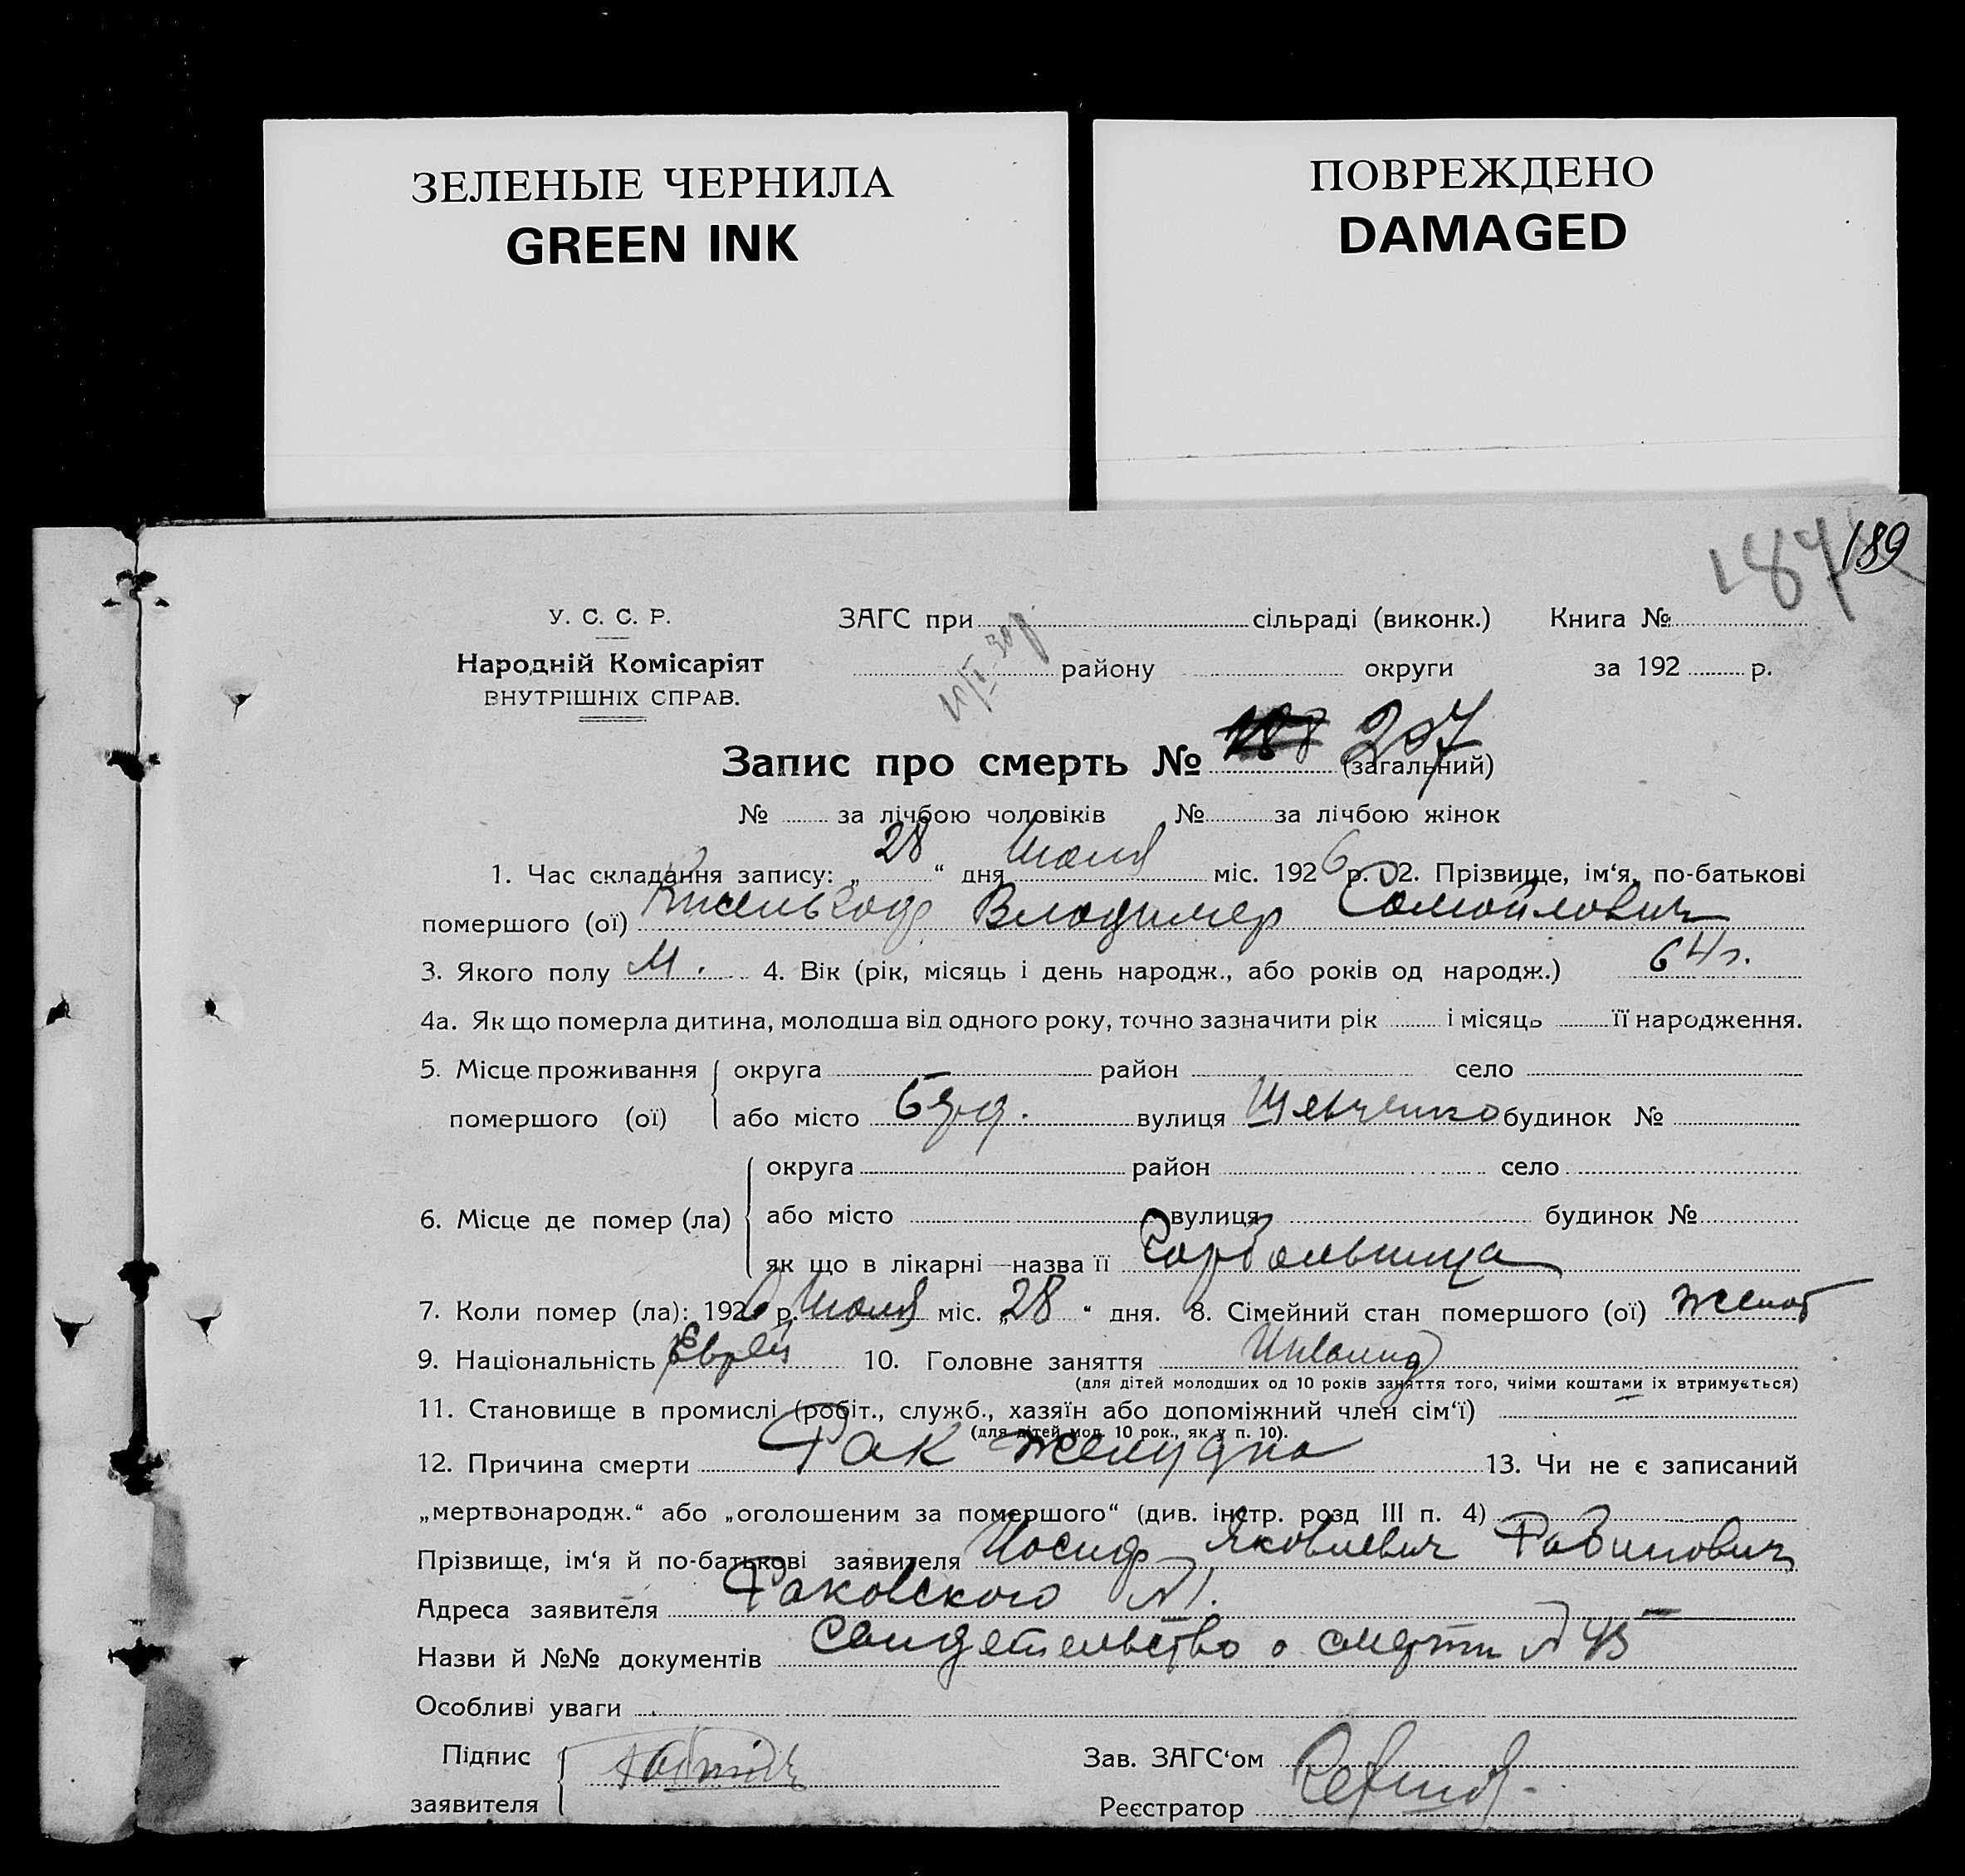 ЗЕЛЕНЫЕ ЧЕРНИЛА
GREEN INK
ПОВРЕЖДЕНО
DAMAGED
187 189
У. С. С. Р.
Народній Комісаріят
ВНУТРІШНІХ СПРАВ.
ЗАГС при сільраді (виконк.) Книга №
району округи за 192 р.
Запис про смерть № 188 207 (загальний)
№ за лічбою чоловіків № за лічбою жінок
1. Час складання запису: „28“ дня Июля міс. 1926 р. 2. Прізвище, ім‘я, по-батькові
помершого (ої) Владимер Самойлович
3. Якого полу М. 4. Вік (рік, місяць і день народж., або років од народж.) 64 г.
4а. Як що померла дитина, молодша від одного року, точно зазначити рік і місяць її народження.
5. Місце проживання помершого (ої) округа район село
або місто вулиця Шевченко будинок №
6. Місце де помер (ла) округа район село
або місто вулиця будинок №
як що в лікарні—назва її Горбольница
7. Коли помер (ла): 1926 р. Июля міс. „28“ дня. 8. Сімейний стан помершого (ої) женат
9. Національність Еврей 10. Головне заняття Инвалид
(для дітей молодших од 10 років заняття того, чиїми коштами їх втримується)
11. Становище в промислі (робіт., служб., хазяїн або допоміжний член сім‘ї)
(для дітей мол. 10 рок., як у п. 10).
12. Причина смерти Рак желудка 13. Чи не є записаний
„мертвонародж.“ або „оголошеним за помершого“ (див. інстр. розд III п. 4)
Прізвище, ім‘я й по-батькові заявителя Иосиф Яковлевич Рабинович
Адреса заявителя Раковского №1.
Назви й №№ документів Свидетельство о смерти № 45
Особливі уваги
Підпис заявителя
Зав. ЗАГС‘ом
Реєстратор